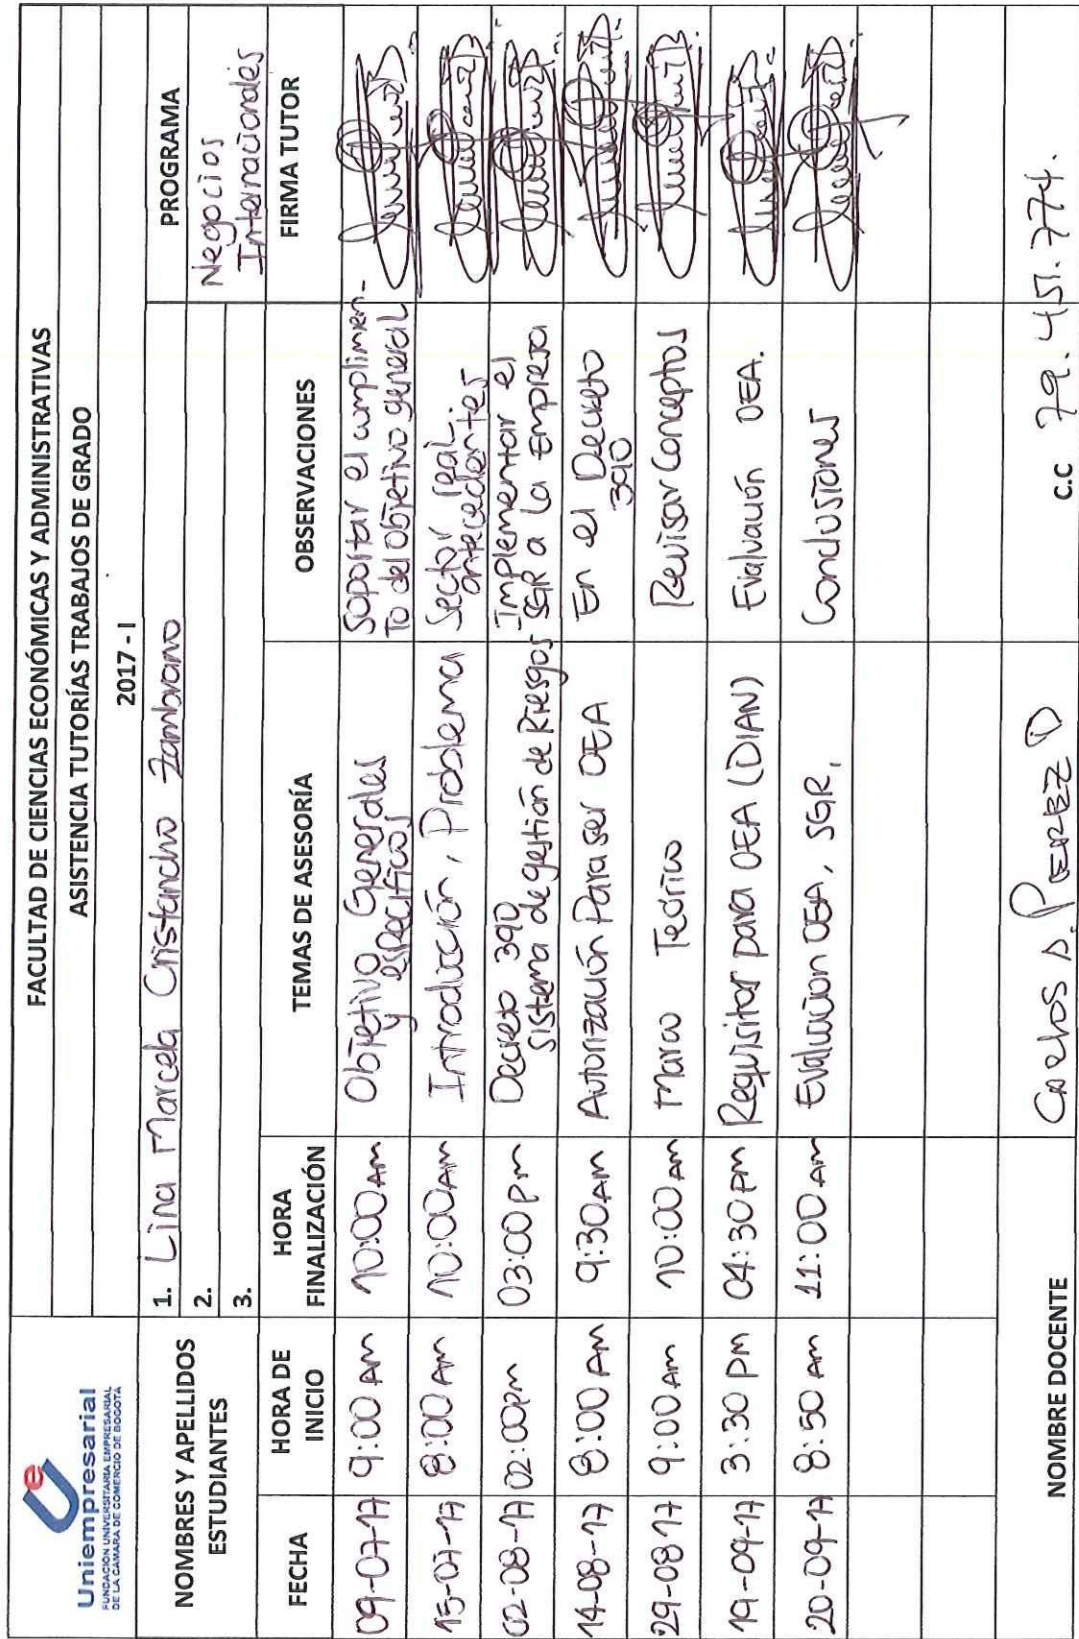 Uniempresarial
FUNDACIÓN UNIVERSITARIA EMPRESARIAL
DE LA CÁMARA DE COMERCIO DE BOGOTÁ
FACULTAD DE CIENCIAS ECONÓMICAS Y ADMINISTRATIVAS
ASISTENCIA TUTORÍAS TRABAJOS DE GRADO
2017 - I
NOMBRES Y APELLIDOS
ESTUDIANTES
1. Lina Marcela Cristancho Zambrano
2.
3.
PROGRAMA
Negocios
Internacionales
FECHA
HORA DE
INICIO
HORA
FINALIZACIÓN
TEMAS DE ASESORÍA
OBSERVACIONES
FIRMA TUTOR
09-07-17 9:00 AM 10:00 AM Objetivo Generales
y específicos
Soportar el cumplimien-
to del objetivo general
15-07-17 8:00 AM 10:00 AM Introducción, Problema
Sector real
antecedentes
02-08-17 02:00pm 03:00 pm Decreto 390
sistema de gestión de Riesgos
Implementar el
SGR a la Empresa
14-08-17 8:00 AM 9:30 AM Autorización Para ser OEA
En el Decreto
390
29-08-17 9:00 AM 10:00 AM Marco Teórico
Revisar Conceptos
19-09-17 3:30 PM 04:30 PM Requisitos para OEA (DIAN)
Evaluación OEA.
20-09-17 8:50 AM 11:00 AM Evaluación OEA, SGR,
Conclusiones
NOMBRE DOCENTE
Carlos A. Perez
C.C 79.451.774.